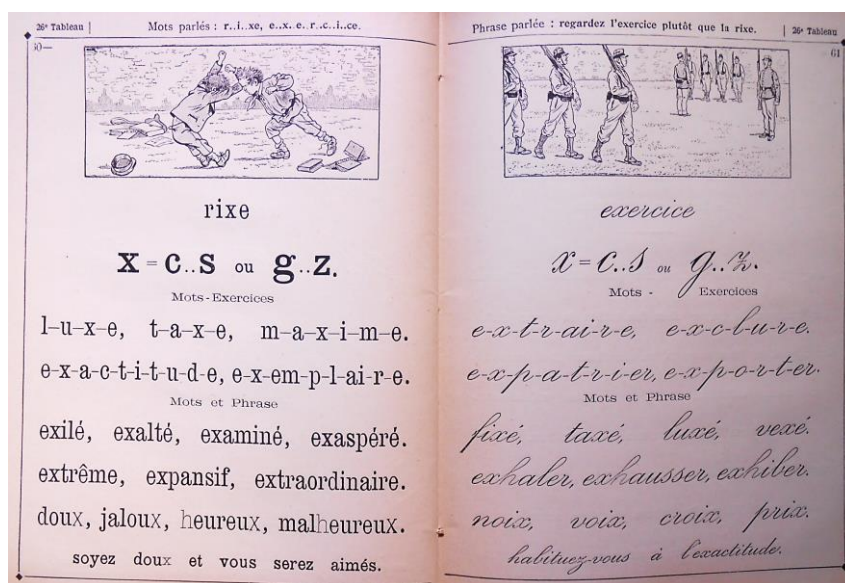 26e Tableau | Mots parlés : r..i..xe, e..x. e..r..c..i..ce.
60—
rixe
x = c..s ou g..z.
Mots-Exercices
l-u-x-e, t-a-x-e, m-a-x-i-m-e.
e-x-a-c-t-i-t-u-d-e, e-x-em-p-l-ai-r-e.
Mots et Phrase
exilé, exalté, examiné, exaspéré.
extrême, expansif, extraordinaire.
doux, jaloux, heureux, malheureux.
soyez doux et vous serez aimés.
Phrase parlée : regardez l'exercice plutôt que la rixe. | 26e Tableau
61
exercice
x = c..s ou g..z.
Mots - Exercices
e-x-t-r-ai-r-e, e-x-c-l-u-r-e.
e-x-p-a-t-r-i-er, e-x-p-o-r-t-er.
Mots et Phrase
fixé, taxé, luxé, vexé.
exhaler, exhausser, exhiber.
noix, voix, croix, prix.
habituez-vous à l'exactitude.